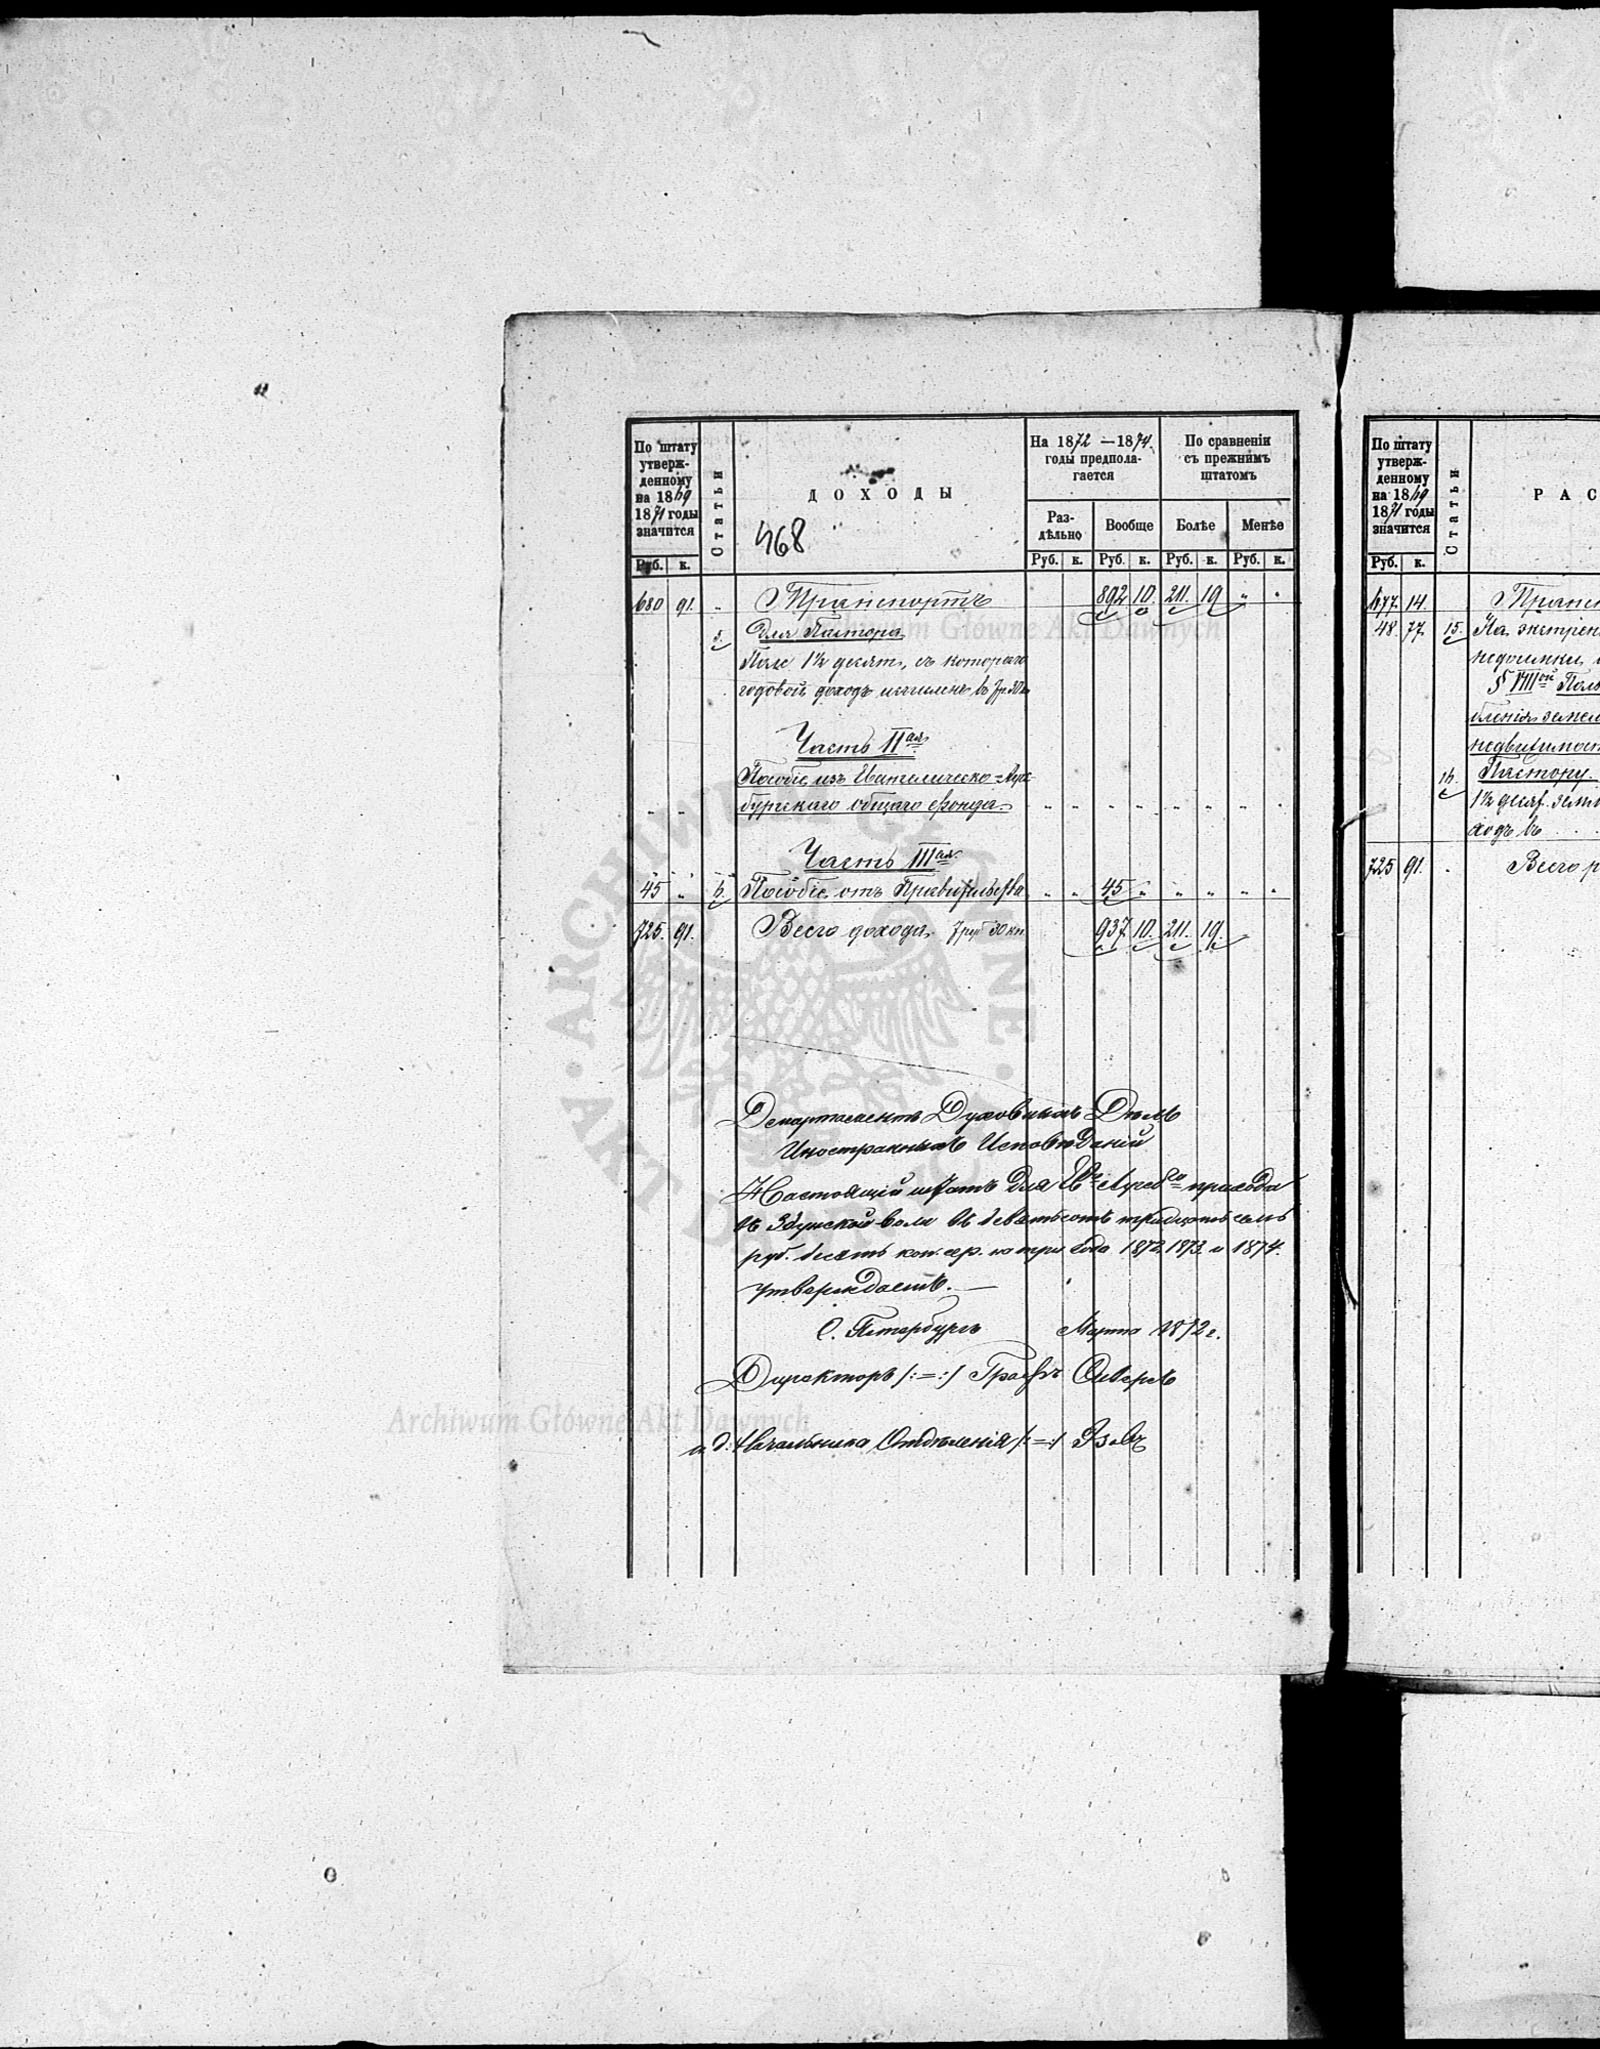 По штату утверж-
денному
на 1869
1871 годы
значится
Статьи
ДОХОДЫ
468
На 1872 —1874
годы предпола-
гается
По сравненiи
съ прежнимъ
штатомъ
Раз-
дѣльно
Вообще
Болѣе
Менѣе
Руб. к. Руб. к. Руб. к. Руб. к. Руб. к.
680 91. „ Транспортъ 892 10. 211. 19 „ „
5. Для Пастора
Поле 1½ десят., съ котораго
годовой доходъ исчисленъ въ 7 р. 30 к.
Часть IIая
Пособіе изъ Евангелическо=Аугс-
бургскаго общаго фонда.
Часть IIIая
45 „ 6. Пособіе отъ Правительства „ „ 45 „ „ „ „ „
725. 91. Всего дохода. 7 руб 30 коп 937 10. 211. 19.
Департаментъ Духовныхъ Дѣлъ
Иностранныхъ Исповѣданій
Настоящій штатъ для Ев. Аугсб. прихода
въ Здунской-воли въ девятьсотъ тридцать семь
руб. десять коп. сер. на три года 1872. 1873. и 1874.
утверждаетъ. —
С. Петербургъ Марта 1872 г.
Директоръ /:=:/ Графъ Сиверсъ
и. д. Начальника Отдѣленія /:=:/
По штату
утверж-
денному
на 1869
1871 годы
значится
Статьи
РАС
Руб. к.
677. 14. Трансп
48. 77. 15. На экстрен
недоимки
§ VIIIой Поль
бленія земел
недвижимос
16. Пастору.
1½ десят. земл
ходъ въ . . .
725 91. Всего р
Archiwum Główne Akt Dawnych
Archiwum Główne Akt Dawnych
ARCHIWUM GŁÓWNE AKT DAWNYCH